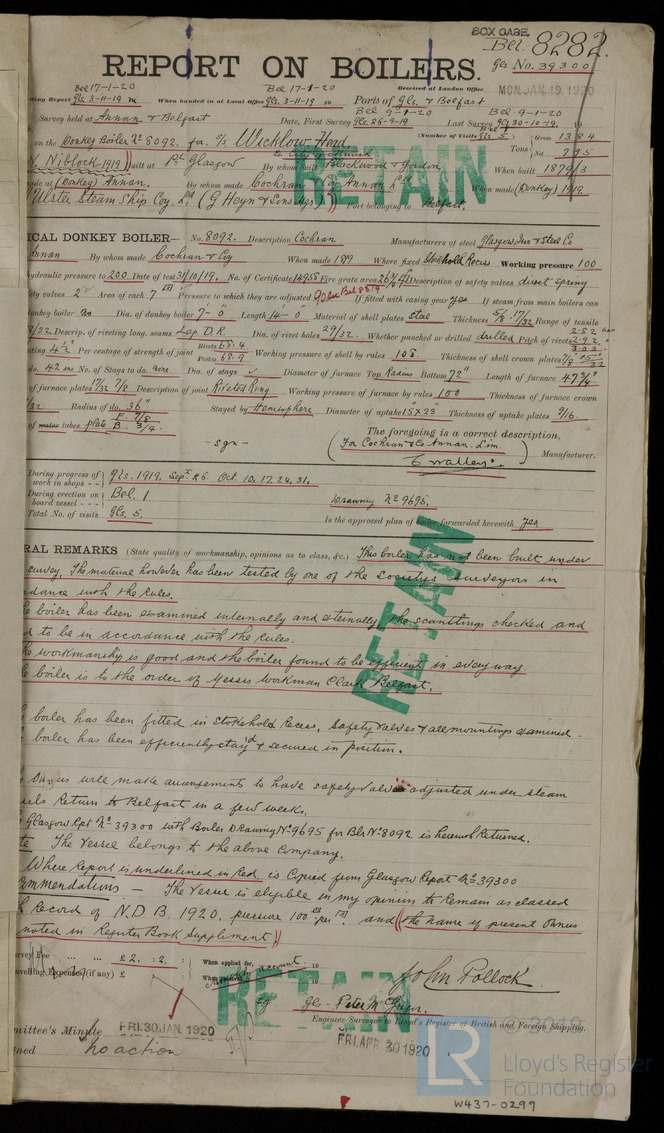 BOX CASE.
Bel. 8282.
REPORT ON BOILERS.
Gls No. 39300
Bel 17-1-20 Bel. 17-1-20 Received at London Office MON. JAN. 19. 1920
ing Report Gls 3-11-19 When handed in at Local Office Gls. 3-11-19 19 Ports of Gls. & Belfast
Bel 9-1-20 Bel. 9-1-20
Survey held at Annan & Belfast Date, First Survey Gls. 26-9-19 Last Survey Gls 30-10-19. 19
on the Donkey Boiler No 8092. for S/S Wicklow Head (Number of Visits Gls. 5 Bel 1) Tons Gross 1384 Net 795
Niblock 1919) built at Pt. Glasgow By whom built Blackwood & Gordon When built 1879/3
ade at (Donkey) Annan. By whom made Cochran & Coy Annan Ld When made (Donkey) 1919
Ulster Steam Ship Coy. Ld (G Heyn & Sons Mgs) Port belonging to Belfast.
RETAIN
ICAL DONKEY BOILER— No. 8092. Description Cochran Manufacturers of steel Glasgow Iron & Steel Co
Annan By whom made Cochran & Coy When made 1919 Where fixed Stokehold Recess Working pressure 100
ydraulic pressure to 200 Date of test 31/10/19. No. of Certificate 14955 Fire grate area 26 3/4 Description of safety valves direct spring
ety valves 2 Area of each 7 Pressure to which they are adjusted If fitted with easing gear yes If steam from main boilers can
onkey boiler no Dia. of donkey boiler 7-0 Length 14-0 Material of shell plates steel Thickness 5/8 17/32 Range of tensile
8/32 Descrip. of riveting long. seams Lap D.R. Dia. of rivet holes 29/32. Whether punched or drilled drilled Pitch of rivets
ating 4 1/2 Per centage of strength of joint Rivets 68.4 Plates 68.9 Working pressure of shell by rules 108. Thickness of shell crown plates
do. 42 ins No. of Stays to do. none Dia. of stays Diameter of furnace Top Radius Bottom 72" Length of furnace 47 3/4"
of furnace plates 17/32 7/8 Description of joint Riveted Ring Working pressure of furnace by rules 100 Thickness of furnace crown
/32 Radius of do. 36" Stayed by Hemisphere Diameter of uptake 15 x 23" Thickness of uptake plates 9/16.
of water tubes plate F. 7/8 B. 3/4.
-sgn- The foregoing is a correct description,
For Cochran & Co Annan. Lim. Manufacturer.
During progress of work in shops - - Gls. 1919. Sept 26 Oct. 10, 17, 24, 31.
During erection on board vessel - - - Bel. 1 Drawing No 9695.
Total No. of visits Gls. 5. Is the approved plan of boiler forwarded herewith yes
RAL REMARKS (State quality of workmanship, opinions as to class, &c.) This boiler has not been built under
survey. The material however has been tested by one of the Society's surveyors in
dance with the Rules.
boiler has been examined internally and externally the scantlings checked and
d to be in accordance with the Rules.
he workmanship is good and the boiler found to be efficient in every way.
boiler is to the order of Messrs Workman Clark Belfast.
RETAIN
boiler has been fitted in Stokehold Recess, Safety Valves & all mountings examined.
boiler has been efficiently stay'd & secured in position.
will make arrangements to have safety valves adjusted under steam
sels Return to Belfast in a few weeks.
Glasgow Rpt No 39300 with Boiler Drawing No 9695 for Blr No 8092 is herewith Returned.
The Vessel belongs to the above Company.
Where Report is underlined in Red is Copied from Glasgow Report No 39300
ommendations — The Vessel is eligible in my opinion to Remain as classed
record of N.D.B. 1920, pressure 100 lbs per and ((the name of present Owners
noted in Register Book Suppliment))
urvey Fee ... ... £2 : 2 : When applied for, 19
avelling Expenses (if any) £ When received, 19
account
RETAIN
John Pollock.
Gls - Peter McGregor.
Engineer Surveyor to Lloyd's Register of British and Foreign Shipping.
mittee's Minute FRI. 30 JAN. 1920 FRI. APR. 30 1920
gned no action
© 2019
LR
Lloyd's Register
Foundation
W437-0299